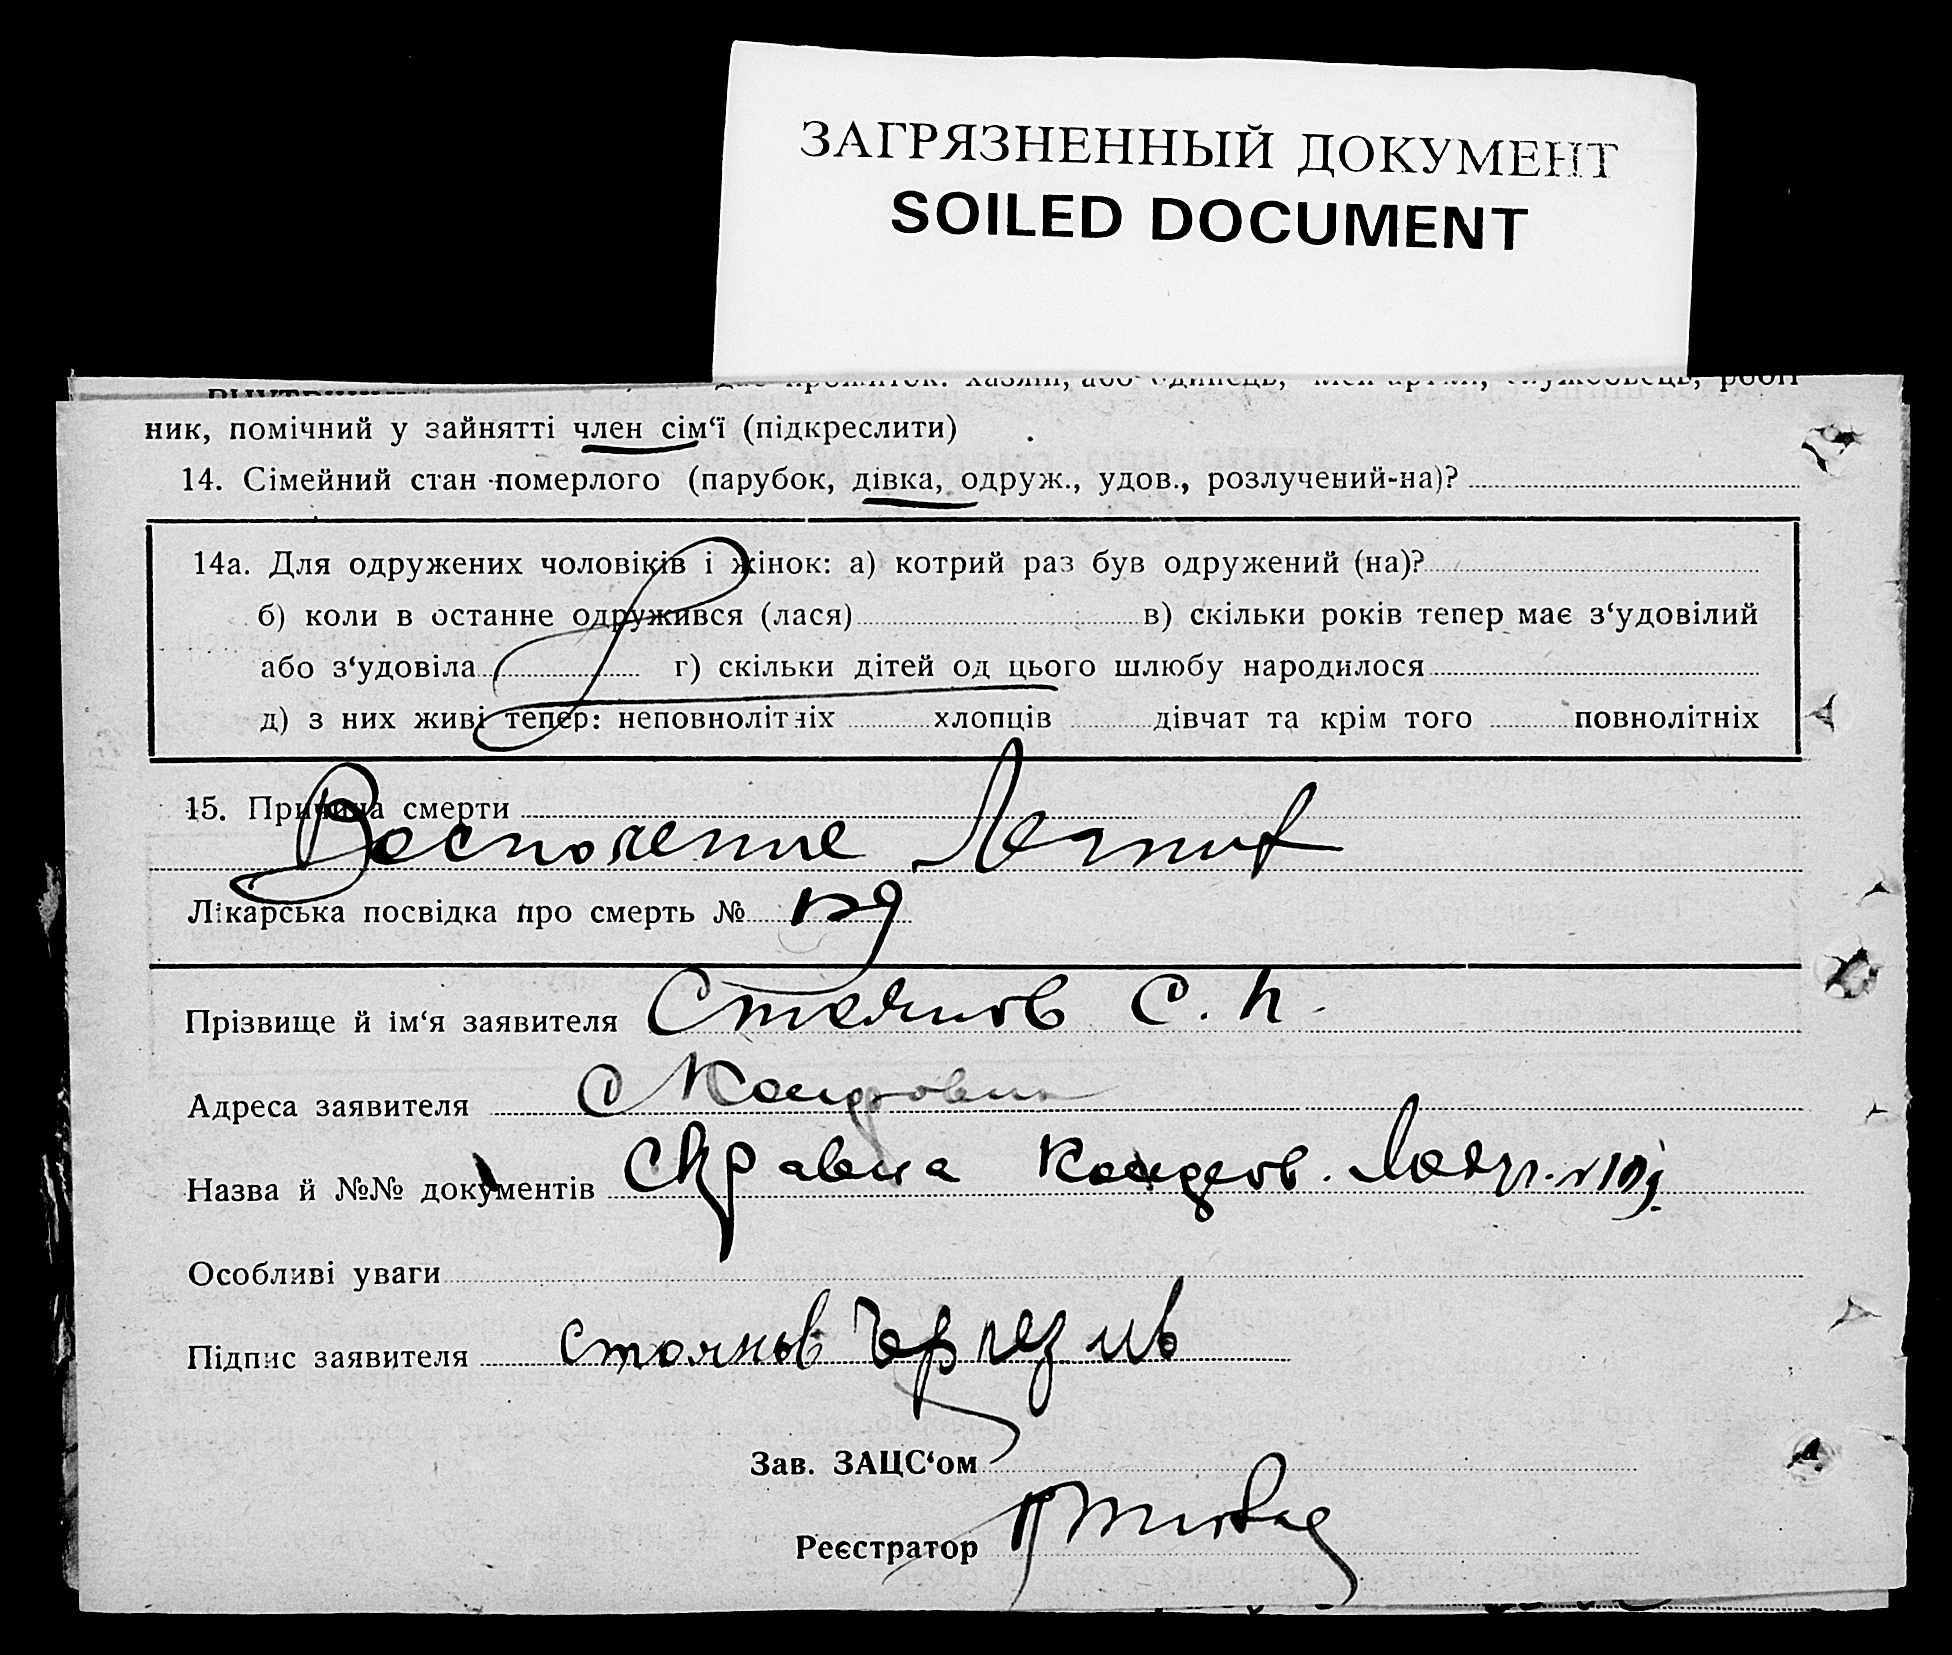 ЗАГРЯЗНЕННЫЙ ДОКУМЕНТ
SOILED DOCUMENT
ник, помічний у зайнятті член сім‘ї (підкреслити)
14. Сімейний стан померлого (парубок, дівка, одруж., удов., розлучений-на)?
14а. Для одружених чоловіків і жінок: а) котрий раз був одружений (на)?
б) коли в останне одружився (лася) в) скільки років тепер має з‘удовілий
або з‘удовіла г) скільки дітей од цього шлюбу народилося
д) з них живі тепер: неповнолітніх хлопців дівчат та крім того повнолітніх
15. Причина смерти
Восполение Легких
Лікарська посвідка про смерть №
Прізвище й ім‘я заявителя Стоянов С. П.
Адреса заявителя С
Назва й №№ документів Справка
Особливі уваги
Підпис заявителя Стоянов
Зав. ЗАЦС‘ом
Реєстратор